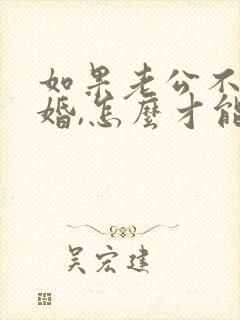 如果老公不
婚,怎麽才能
吴宏建